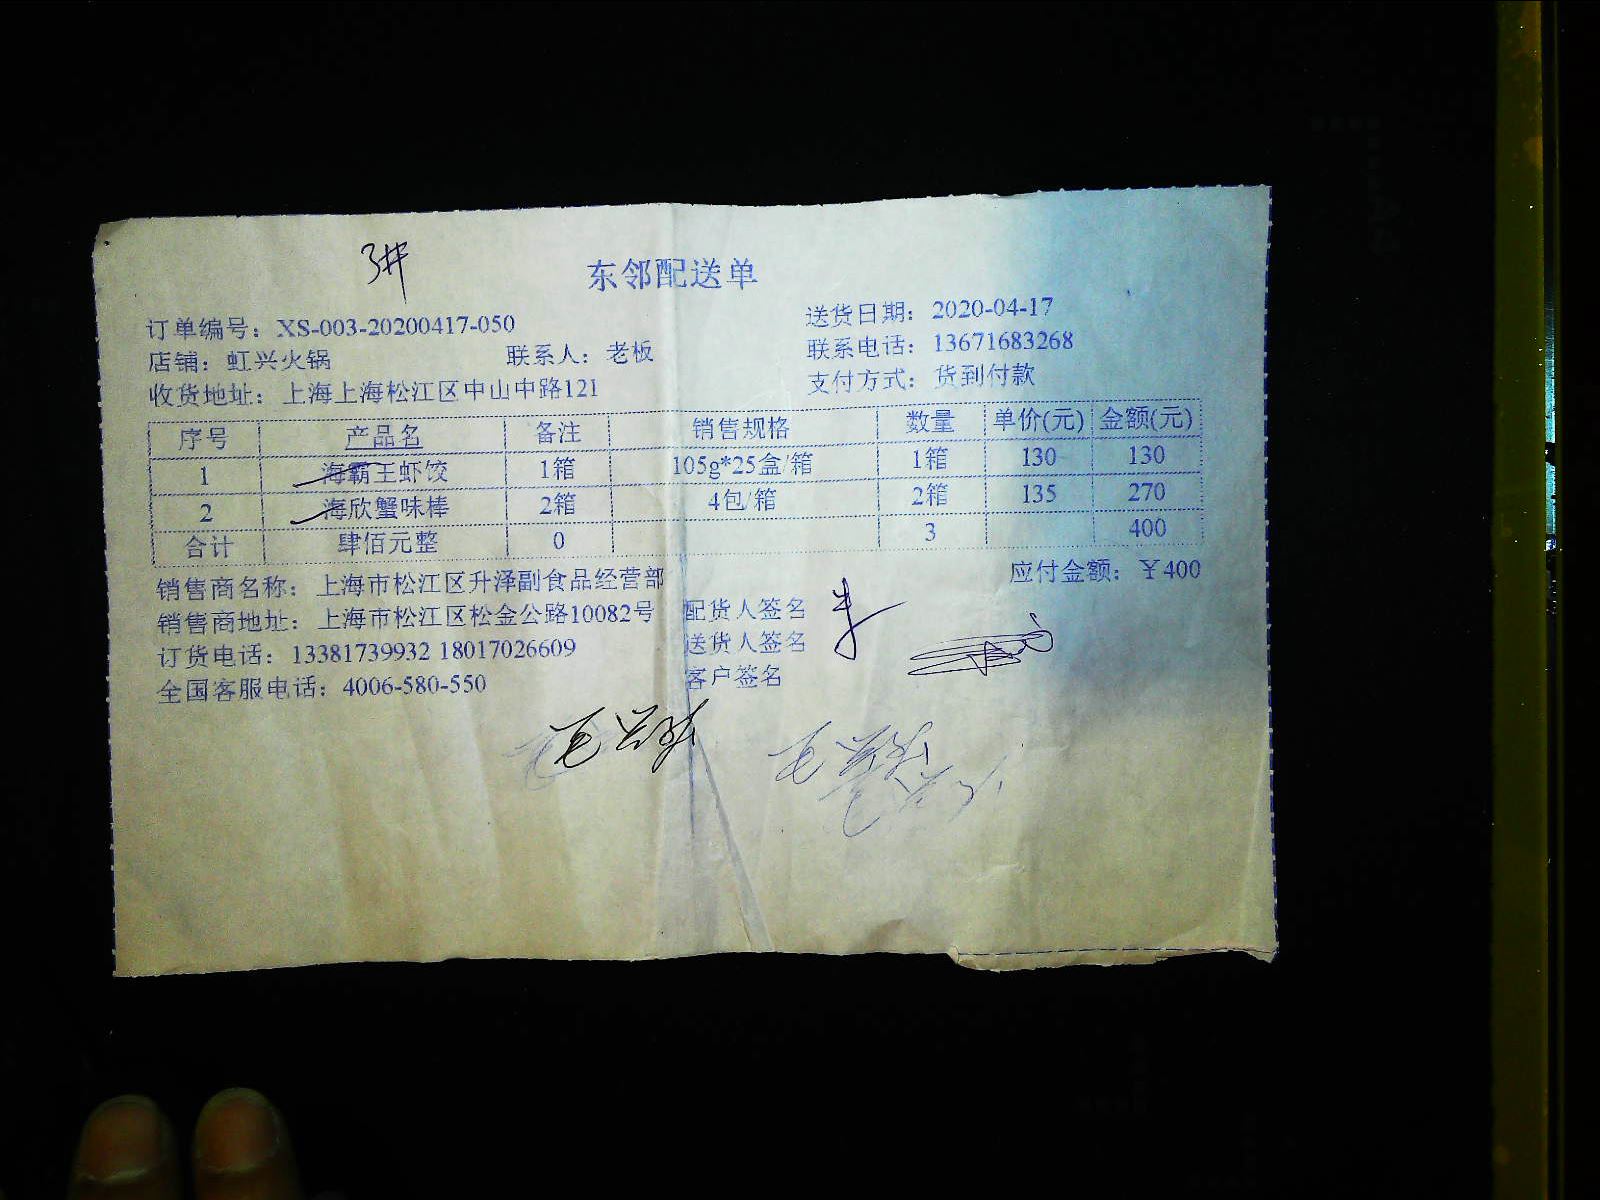 3#
东邻配送单
订单编号：XS-003-20200417-050 送货日期：2020-04-17
店铺：虹兴火锅 联系人：老板 联系电话：13671683268
收货地址：上海上海松江区中山中路121 支付方式：货到付款
序号 产品名 备注 销售规格 数量 单价(元) 金额(元)
1 海霸王虾饺 1箱 105g*25盒/箱 1箱 130 130
2 海欣蟹味棒 2箱 4包/箱 2箱 135 270
合计 肆佰元整 0 3 400
销售商名称：上海市松江区升泽副食品经营部 应付金额：￥400
销售商地址：上海市松江区松金公路10082号 配货人签名
订货电话：13381739932 18017026609 送货人签名
全国客服电话：4006-580-550 客户签名